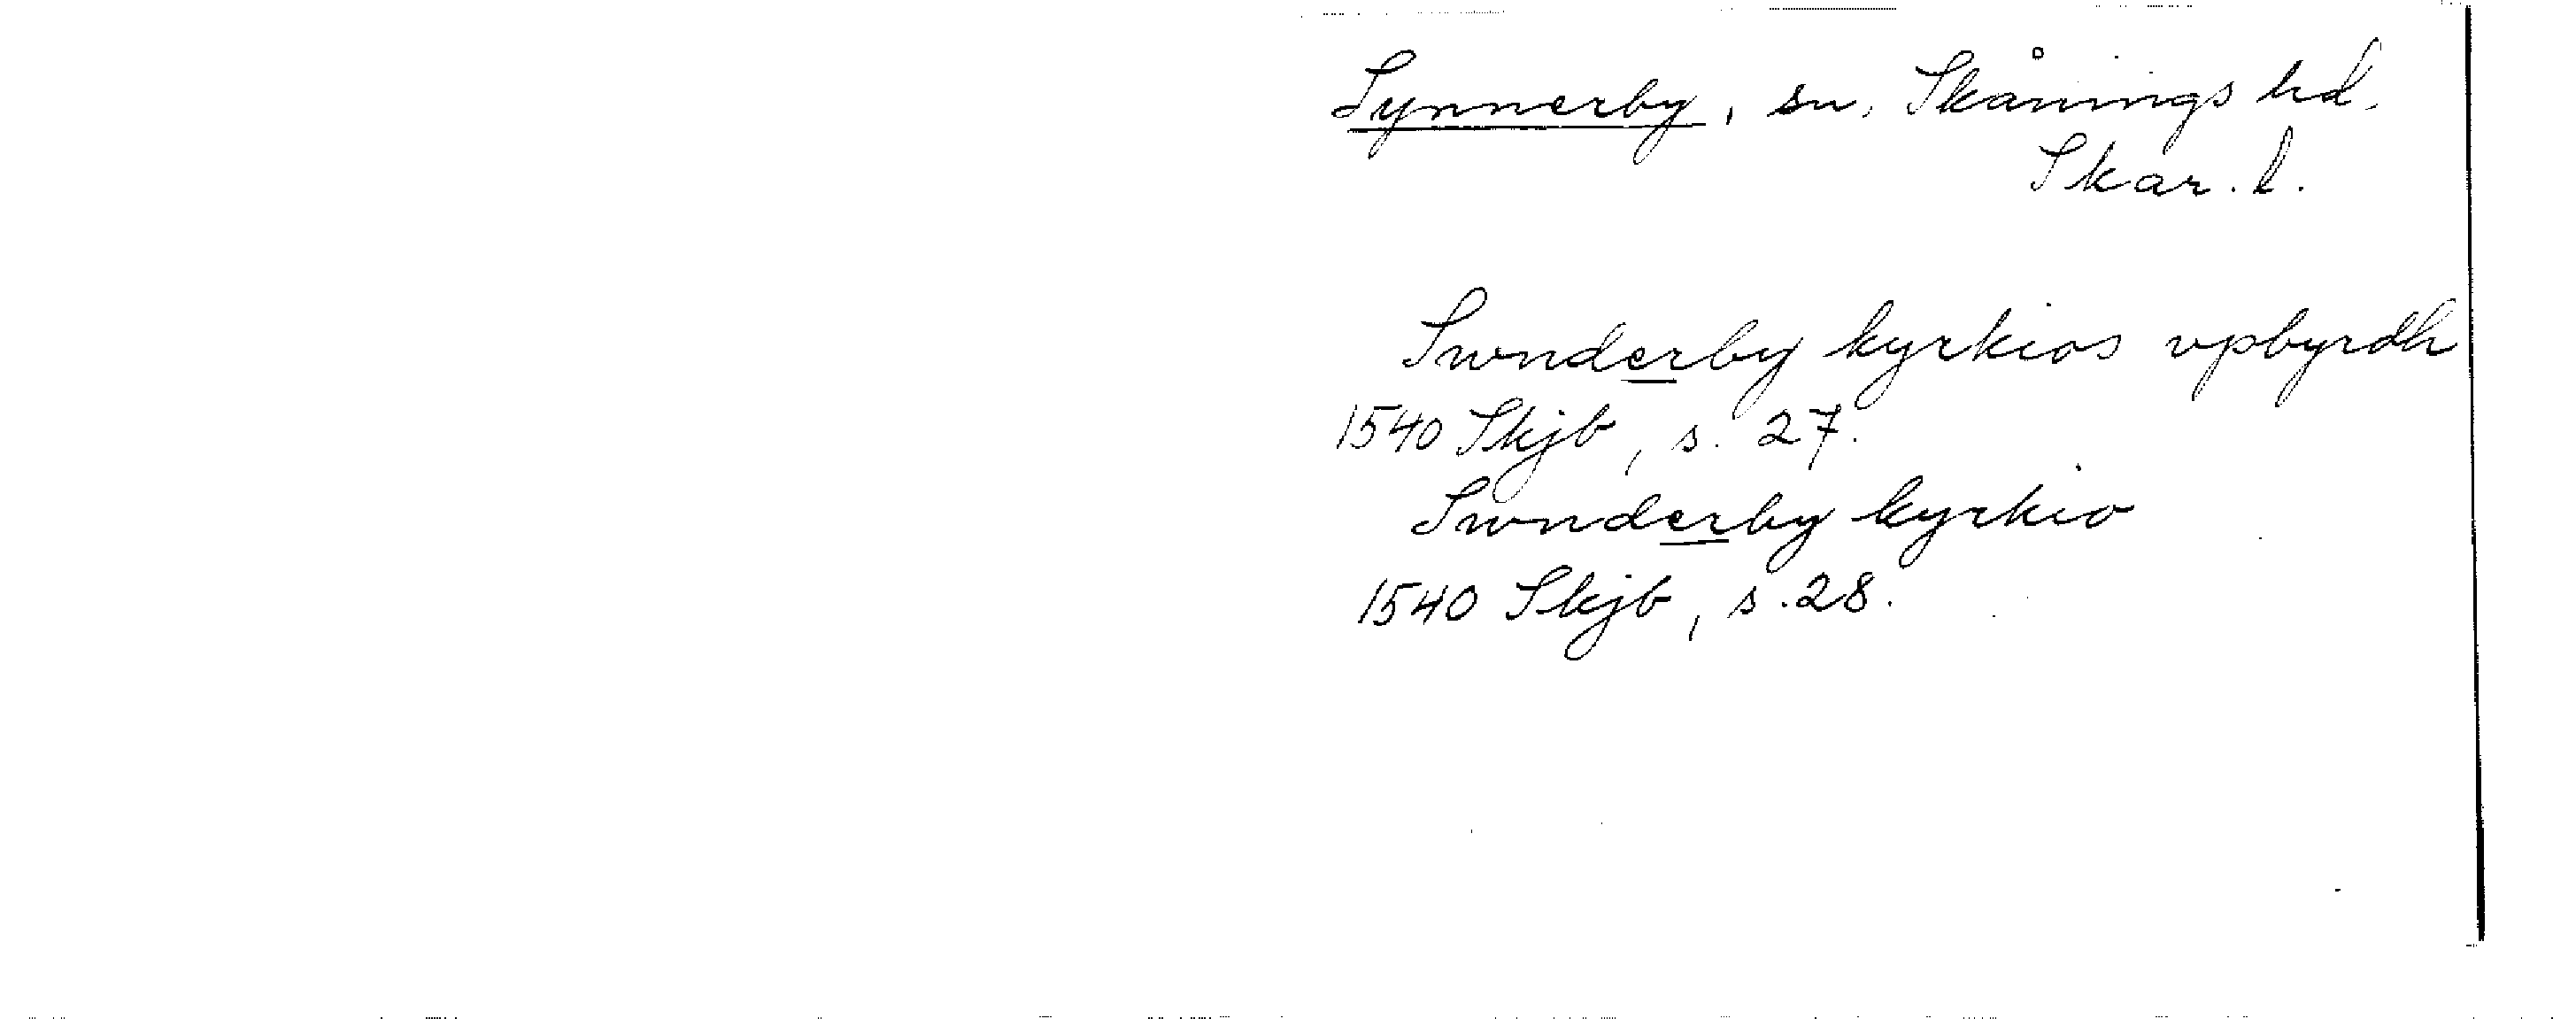 Synnerby, sn, Skånings hd.
Skar. l.
Swnderby kyrkios vpbyrdh
1540 Skjb, s. 27.
Swnderby kyrkio
1540 Skjb, s. 28.